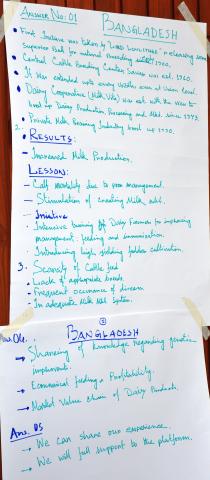 Answer No: 01
BANGLADESH
• First Initiave was taken by "Lord Linlithgo" in releasing some
Superior Bull for natural Breeding 1940.
• Central Cattle Breeding Center, Savar was est. 1960.
• It was extended upto every upazila even at Union Level.
• Dairy Cooperative (Milk Vita) was est. with the view to
boost up Dairy Production, Processing and Mkt. since 1973.
• Private Milk Rearing Industry boost up 1990.
2. • RESULTS:
- Increased Milk Production.
LESSON:
- Calf mortality due to poor management.
- Stimulation of creating Milk
- Iniative
- Intensive training of Dairy Farmers for improving
management, feeding and immunization.
- Introducing high yielding fodder cultivation.
3. • Scarsity of Cattle feed
- Lack of appropriate breeds
- Frequent occurance of disease
- In adequate Milk Mkt System.
②
Ans. 04.
BANGLADESH
→ Sharing of knowledge regarding genetic
→ Economical feeding & Profitability.
→ Market Value Chain of Dairy Products.
Ans. 05
→ We can share our experience.
→ We will full support to the platform.